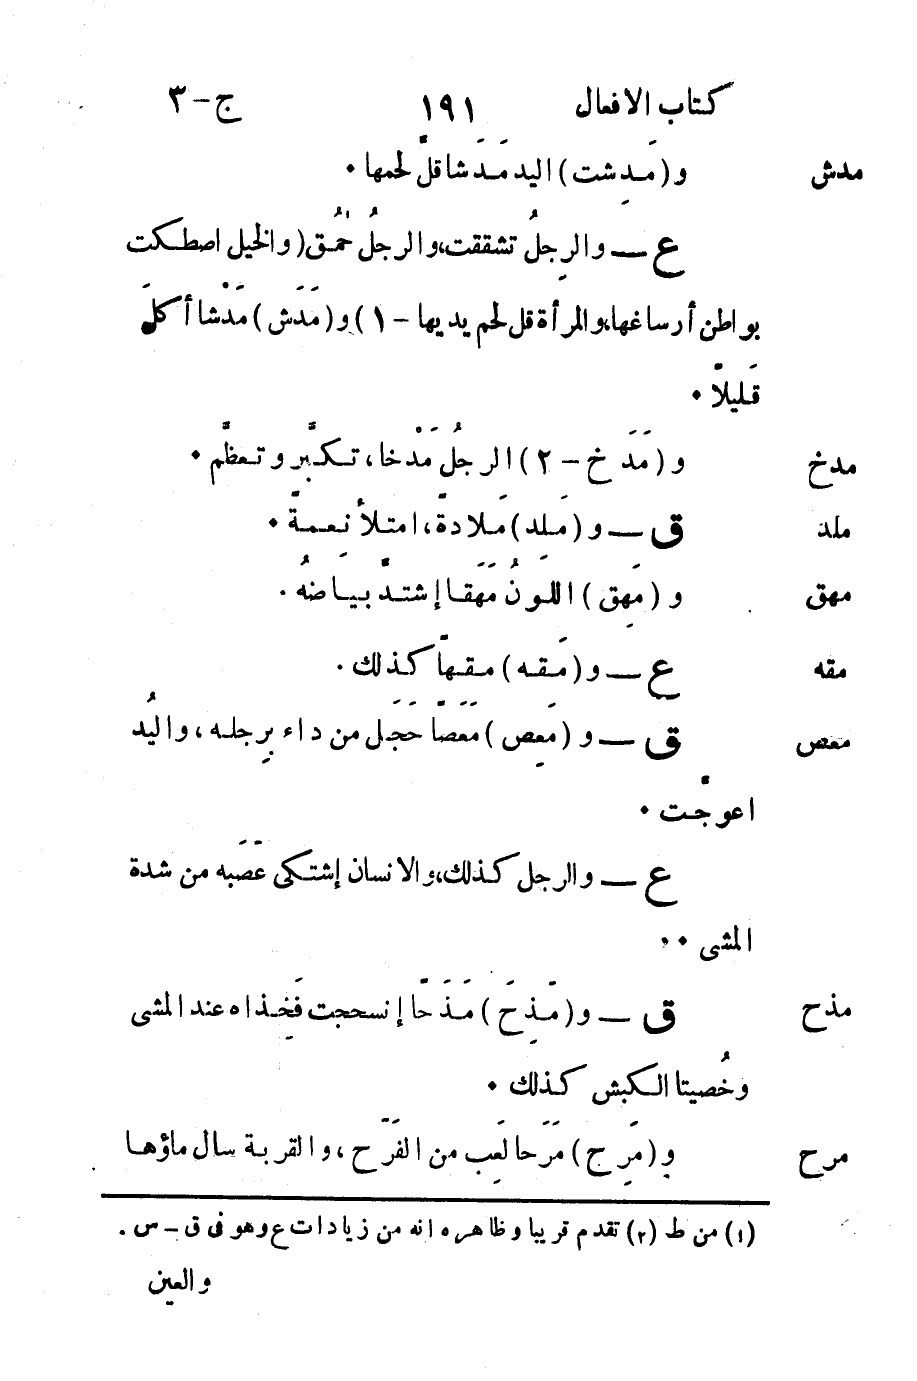 كتاب الافعال ١٩١ ج-٣
مدش و (مَدِشت) اليد مَدَشا قلّ لحمها٠
ع — والرِجلُ تشققت، والرجلُ حُمُق (والخيل اصطكت
بواطن أرساغها، والمرأة قل لحم يديها - ١) و (مَدَش) مَدْشا أكلَ
قَليلاً٠
مدخ و (مَدَخ - ٢) الرجلُ مَدْخا، تكبَّر وتعظَّم٠
ملد ق — و (مَلِد) مَلادةً، امتلأ نِعمةً٠
مهق و (مَهِق) اللونُ مَهَقا إشتدَّ بياضهُ.
مقه ع — و (مَقه) مقهاً كذلك.
معص ق — و (مَعِص) مَعَصاً حَجَل من داء بِرجله، واليُد
اعوجّت٠
ع — والرجل كذلك، والانسان إشتكى عَصَبه من شدة
المشى٠٠
مذح ق — و (مَذِحَ) مَذَحاً إنسحجت فَخِذاه عند المشى
وخُصيتا الكبش كذلك٠
مرح و (مَرِح) مَرَحا لَعِب من الفَرَح، والقربة سال ماؤها
(١) من ط (٢) تقدم قريبا وظاهره انه من زيادات ع وهو فى ق - س.
والعين